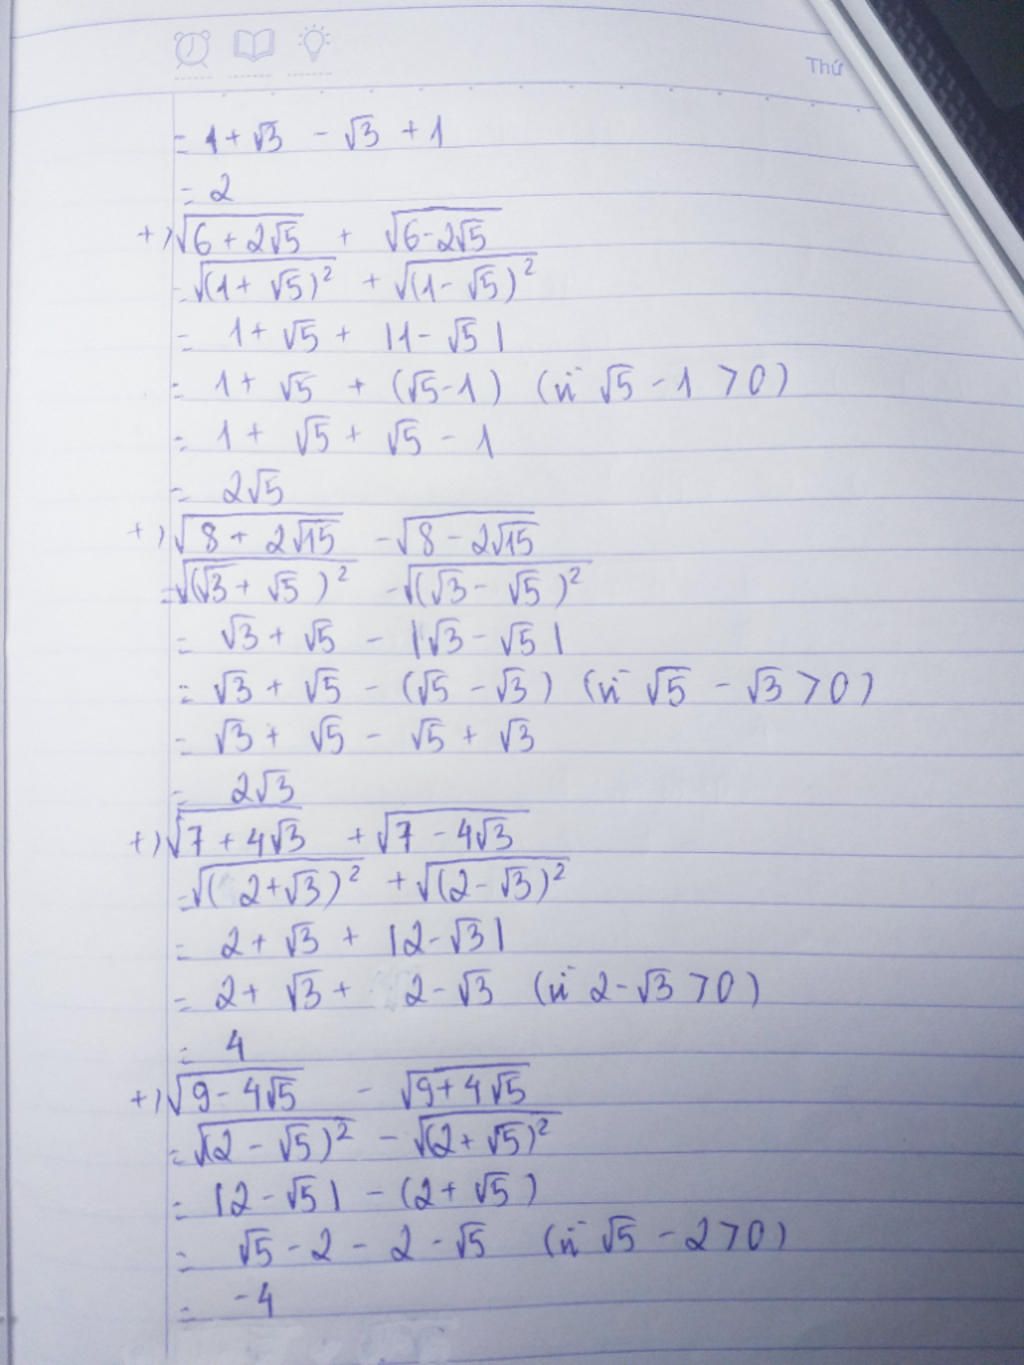 Thứ
= 1 + √3 - √3 + 1
= 2
+) √(6 + 2√5) + √(6 - 2√5)
= √((1 + √5)²) + √((1 - √5)²)
= 1 + √5 + |1 - √5|
= 1 + √5 + (√5 - 1) (vì √5 - 1 > 0)
= 1 + √5 + √5 - 1
= 2√5
+) √(8 + 2√15) - √(8 - 2√15)
= √((√3 + √5)²) - √((√3 - √5)²)
= √3 + √5 - |√3 - √5|
= √3 + √5 - (√5 - √3) (vì √5 - √3 > 0)
= √3 + √5 - √5 + √3
= 2√3
+) √(7 + 4√3) + √(7 - 4√3)
= √((2 + √3)²) + √((2 - √3)²)
= 2 + √3 + |2 - √3|
= 2 + √3 + 2 - √3 (vì 2 - √3 > 0)
= 4
+) √(9 - 4√5) - √(9 + 4√5)
= √((2 - √5)²) - √((2 + √5)²)
= |2 - √5| - (2 + √5)
= √5 - 2 - 2 - √5 (vì √5 - 2 > 0)
= -4